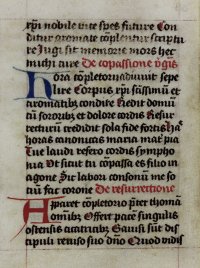 xpi nobile vite spes future Con
ditur aromate cōplentur scriptu
re Iugi sit memorie mors hec
michi cure De cōpassione v̄gis
Hora cōpletorii aduenit sepe
lire Corpus xpi sc̄issimū et
aromatibꝫ condire Redit domū
cū sororibꝫ et dolore cordis Resur
recturū credidit sola fide fortis Has
horas canonicas maria mater pia
Tue laudi refero cordis symphonia
Vt sicut tu cōpassa es filio in
agone Sic labori consone me so
ciū fac corone De resurrectione
Apparet cōpletorio p̄ter thomā
hominibꝫ Offert pacē singulis
ostensis cicatricibꝫ Gauisi sūt dis
cipuli reuiso suo dn̄o Quod vidis